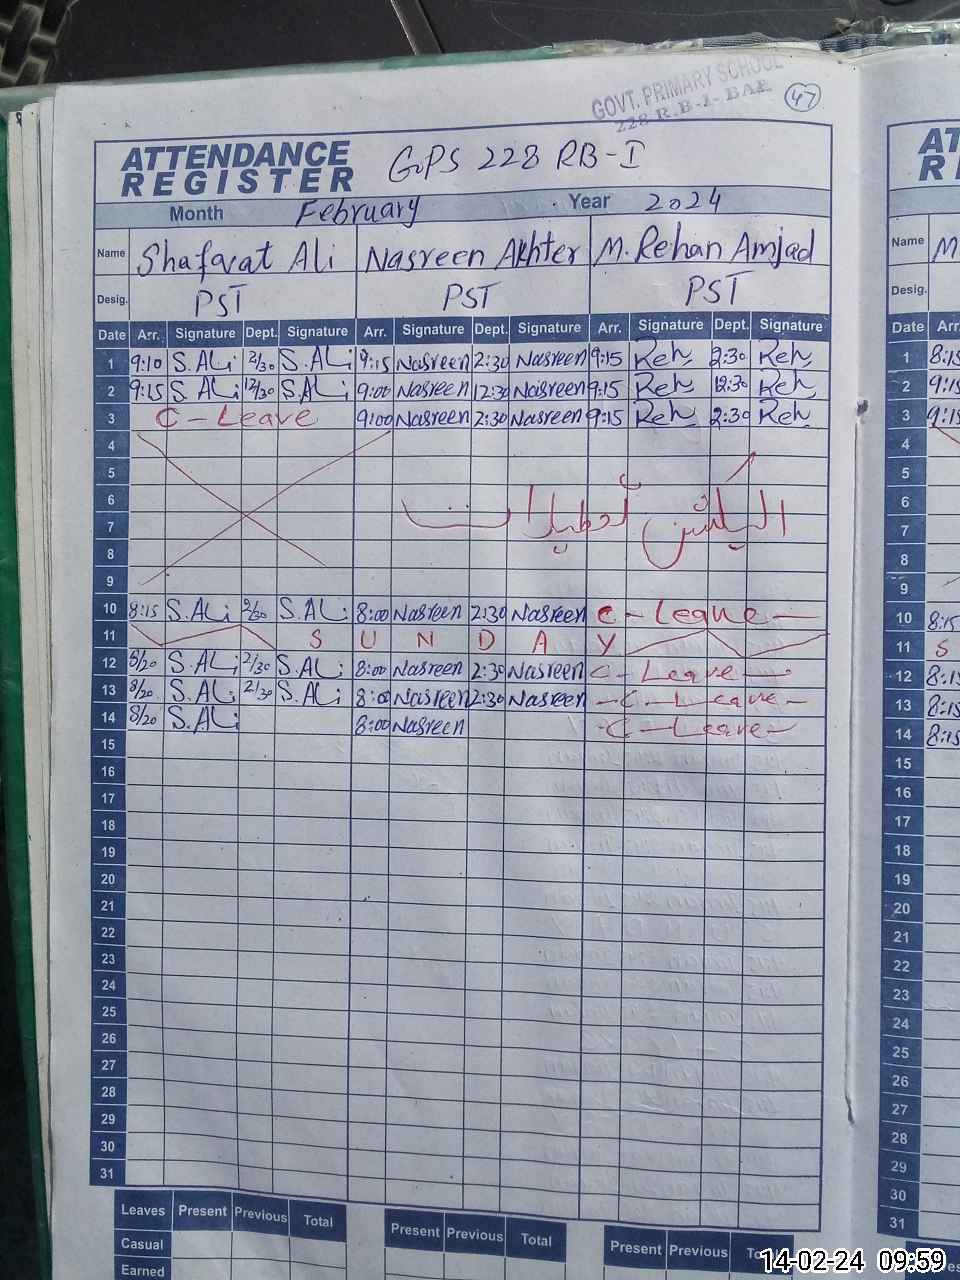 GOVT. PRIMARY SCHOOL
228 R.B-I
47
ATTENDANCE REGISTER GPS 228 RB-I
Month February Year 2024
Name Shafavat Ali Nasreen Akhter M. Rehan Amjad
Desig. PST PST PST
Date Arr. Signature Dept. Signature Arr. Signature Dept. Signature Arr. Signature Dept. Signature
1 9:10 S.ALi 2/30 S.ALi 9:15 Nasreen 2:30 Nasreen 9:15 Reh 2:30 Reh
2 9:15 S.ALi 12/30 S.ALi 9:00 Nasreen 12:30 Nasreen 9:15 Reh 12:30 Reh
3 C - Leave 9:00 Nasreen 2:30 Nasreen 9:15 Reh 2:30 Reh
4
5
6
7
8
9
10 8:15 S.ALi 2/30 S.ALi 8:00 Nasreen 2:30 Nasreen C - Leave -
11 S U N D A Y
12 8/20 S.ALi 2/30 S.ALi 8:00 Nasreen 2:30 Nasreen C - Leave -
13 8/20 S.ALi 2/30 S.ALi 8:00 Nasreen 2:30 Nasreen - C - Leave -
14 8/20 S.ALi 8:00 Nasreen - C - Leave -
15
16
17
18
19
20
21
22
23
24
25
26
27
28
29
30
31
Leaves Present Previous Total Present Previous Total Present Previous
Casual
Earned
Name M
Desig.
Date Arr
1 8:15
2 9:15
3 9:15
4
5
6
7
8
9
10 8:15
11 S
12 8:15
13 8:15
14 8:15
15
16
17
18
19
20
21
22
23
24
25
26
27
28
29
30
31
14-02-24 09:59